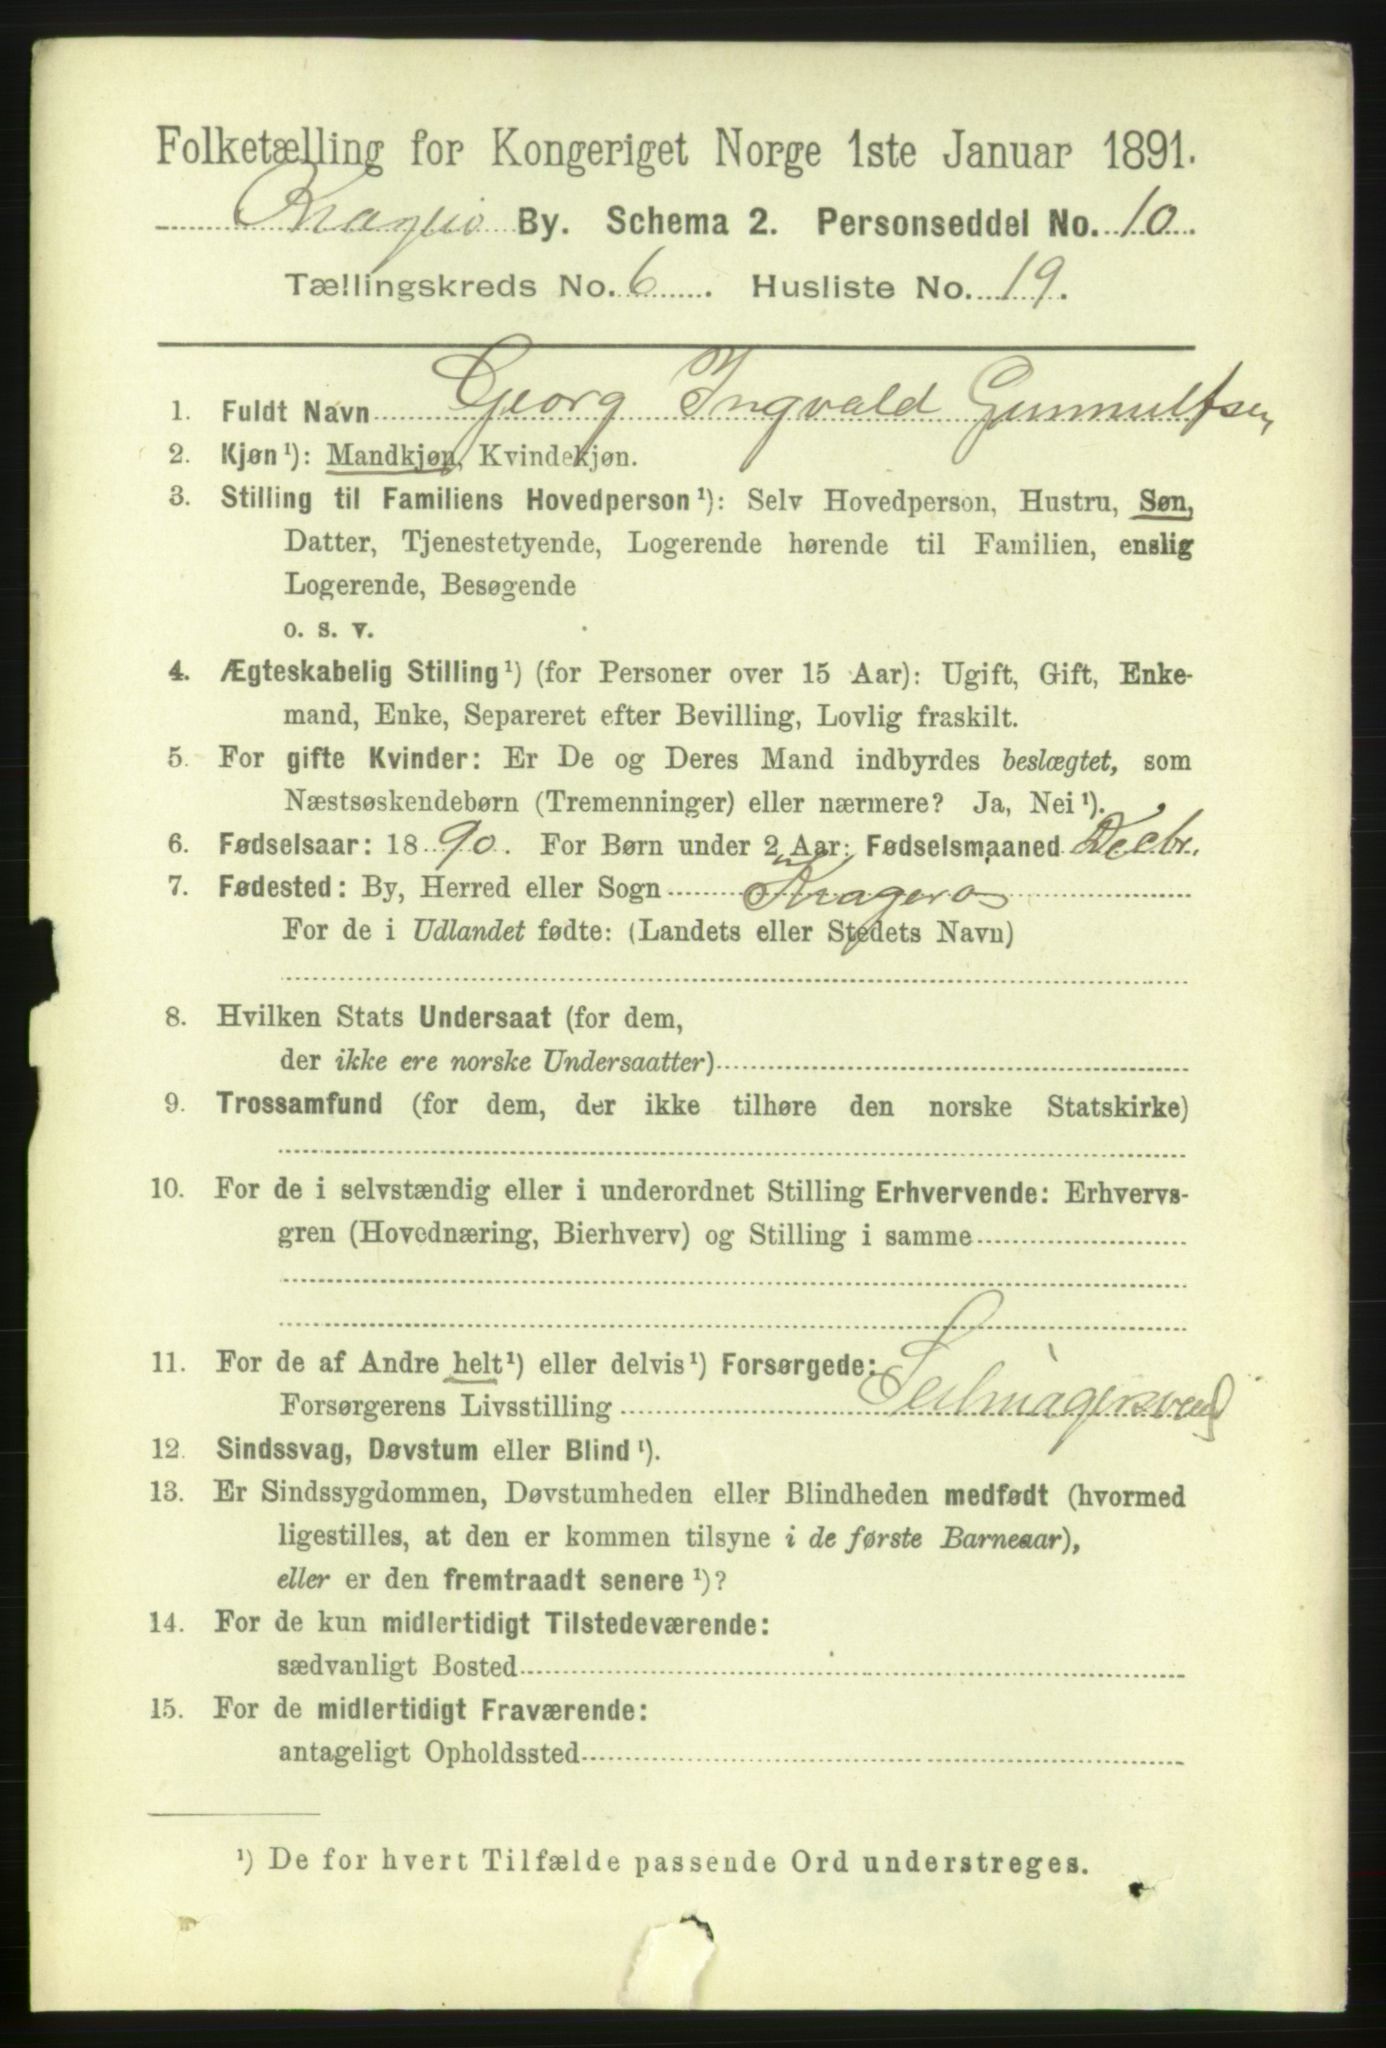 Folketælling for Kongeriget Norge 1ste Januar 1891.
Kragerø By. Schema 2. Personseddel No. 10.
Tællingskreds No. 6. Husliste No. 19.
1. Fuldt Navn Georg Ingvald Gunnulfsen
2. Kjøn ¹): Mandkjøn, Kvindekjøn.
3. Stilling til Familiens Hovedperson ¹): Selv Hovedperson, Hustru, Søn,
Datter, Tjenestetyende, Logerende hørende til Familien, enslig
Logerende, Besøgende
o. s. v.
4. Ægteskabelig Stilling ¹) (for Personer over 15 Aar): Ugift, Gift, Enke-
mand, Enke, Separeret efter Bevilling, Lovlig fraskilt.
5. For gifte Kvinder: Er De og Deres Mand indbyrdes beslægtet, som
Næstsøskendebørn (Tremenninger) eller nærmere? Ja, Nei ¹).
6. Fødselsaar: 1890. For Børn under 2 Aar: Fødselsmaaned Decbr.
7. Fødested: By, Herred eller Sogn Kragerø
For de i Udlandet fødte: (Landets eller Stedets Navn)
8. Hvilken Stats Undersaat (for dem,
der ikke ere norske Undersaatter)
9. Trossamfund (for dem, der ikke tilhøre den norske Statskirke)
10. For de i selvstændig eller i underordnet Stilling Erhvervende: Erhvervs-
gren (Hovednæring, Bierhverv) og Stilling i samme
11. For de af Andre helt ¹) eller delvis ¹) Forsørgede:
Forsørgerens Livsstilling Seilmagersvend
12. Sindssvag, Døvstum eller Blind ¹).
13. Er Sindssygdommen, Døvstumheden eller Blindheden medfødt (hvormed
ligestilles, at den er kommen tilsyne i de første Barneaar),
eller er den fremtraadt senere ¹)?
14. For de kun midlertidigt Tilstedeværende:
sædvanligt Bosted
15. For de midlertidigt Fraværende:
antageligt Opholdssted
¹) De for hvert Tilfælde passende Ord understreges.